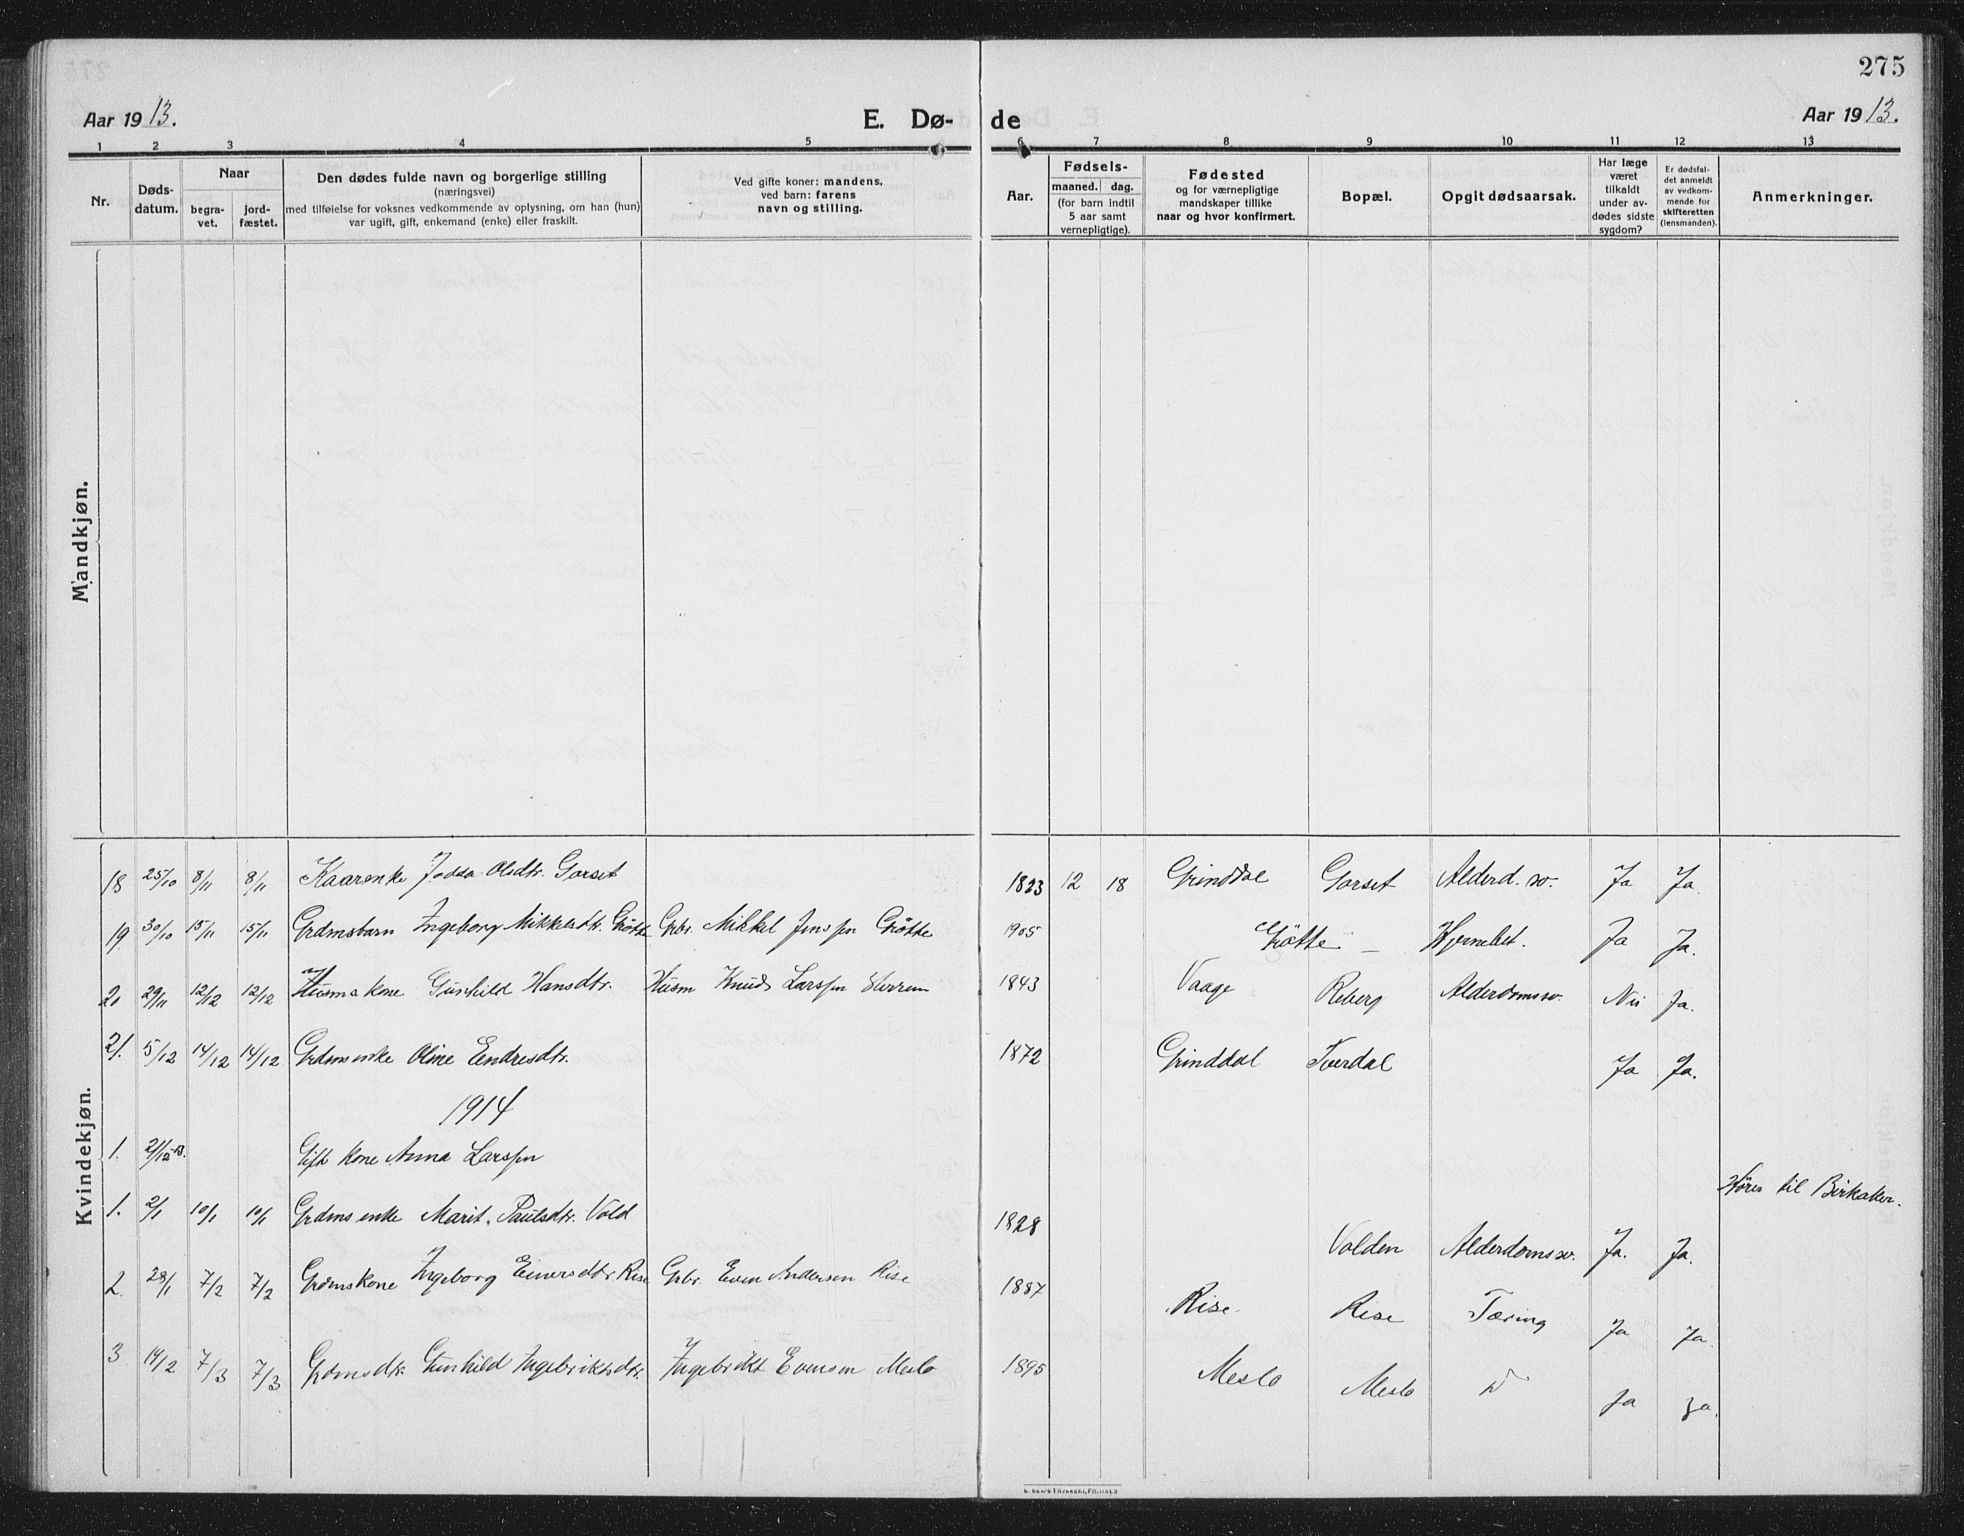 275
Aar 1913.
E. Dø-
de
Aar 1913.
1 2 3 4 5 6 7 8 9 10 11 12 13
Nr.
Døds-
datum.
Naar
begra-
vet.
jord-
fæstet.
Den dødes fulde navn og borgerlige stilling
(næringsvei)
med tilføielse for voksnes vedkommende av oplysning, om han (hun)
var ugift, gift, enkemand (enke) eller fraskilt.
Ved gifte koner: mandens,
ved barn: farens
navn og stilling.
Aar.
Fødsels-
maaned. dag.
(for barn indtil
5 aar samt
vernepligtige).
Fødested
og for værnepligtige
mandskaper tillike
naar og hvor konfirmert.
Bopæl.
Opgit dødsaarsak.
Har læge
været
tilkaldt
under av-
dødes sidste
sygdom?
Er dødsfal-
det anmeldt
av vedkom-
mende for
skifteretten
(lensmanden).
Anmerkninger.
Mandkjøn.
Kvindekjøn.
18 25/10 8/11 8/11 Kaarenke Jodda Olsdtr. Gorset 1823 12 18 Grinddal Gorset Alderd. sv. Ja Ja.
19 30/10 15/11 15/11 Grdmsbarn Ingeborg Mikkelsdtr. Grøtte Gbr. Mikkel Jenssen Grøtte 1905 Grøtte — Hjernebet. Ja Ja.
20 29/11 12/12 12/12 Husmskone Gunhild Hansdtr. Husm Knud Larssen Herrem 1843 Vaage Reberg Alderdomssv. Nei Ja.
21. 5/12 14/12 14/12 Grdmsenke Oline Endresdtr. 1872 Grinddal Tverdal Ja Ja.
1914
1. 21/12-13. Gift kone Anna Larssen
Hører til Birkaker.
1. 2/1 10/1 10/1 Grdmsenke Marit Paulsdtr. Vold 1828 Volden Alderdomssv. Ja. Ja.
2. 28/1 7/2 7/2 Grdmskone Ingeborg Einersdtr. Rise Gbr. Even Andersen Rise 1887 Rise. Rise Tæring Ja Ja.
3 14/2 7/3 7/3 Grdmsdtr. Gunhild Ingebriktsdtr. Ingebrikt Evensen Meslo 1895 Meslo Meslo Ja Ja.